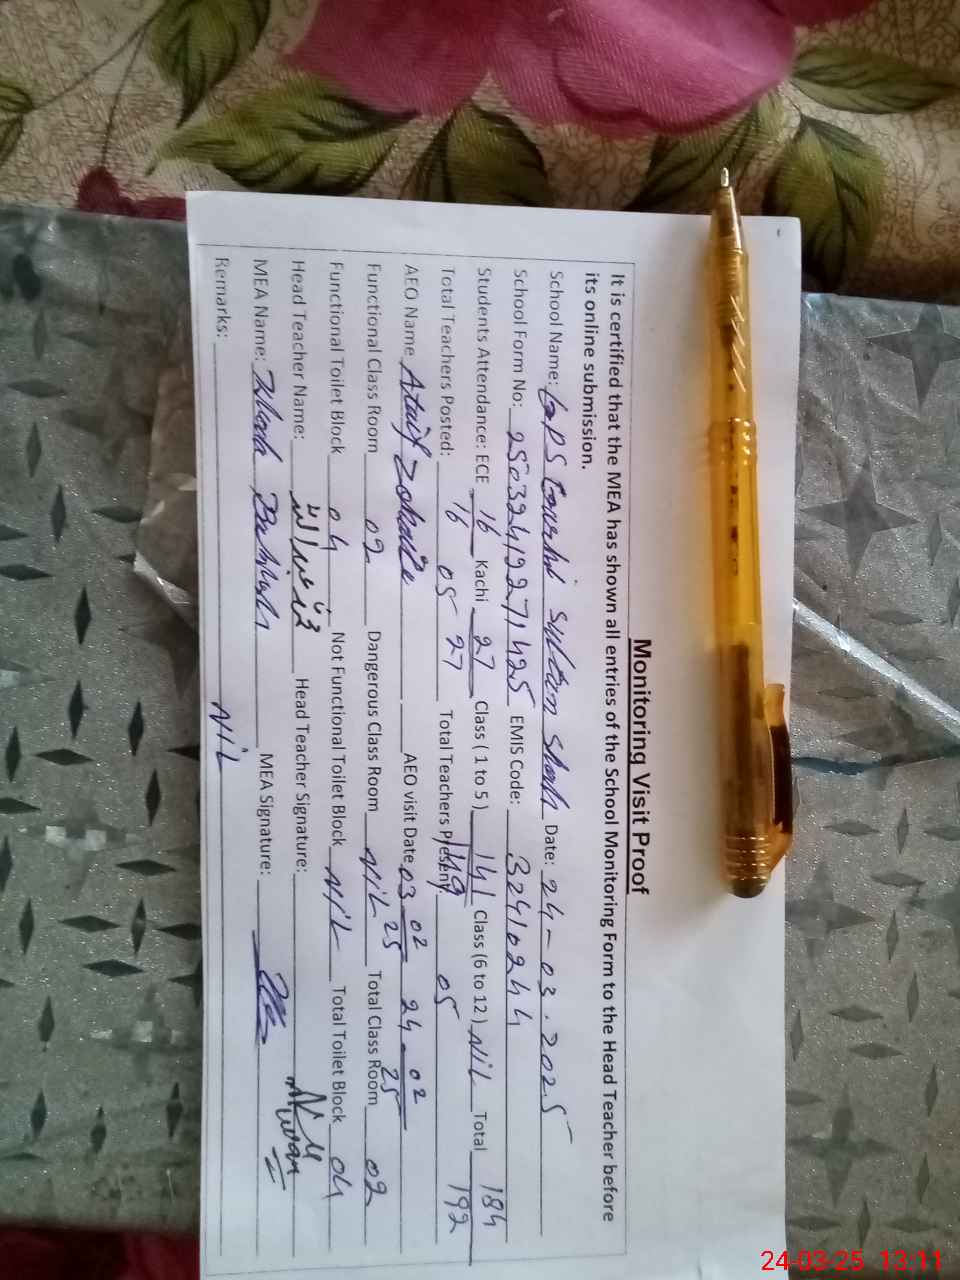 Monitoring Visit Proof
It is certified that the MEA has shown all entries of the School Monitoring Form to the Head Teacher before
its online submission.
School Name: GPS Date: 24-03-2025
School Form No: 25032419271425 EMIS Code: 32410244
Students Attendance: ECE 16 Kachi 27 Class ( 1 to 5 ) 141 Class (6 to 12 ) NiL Total 184
16 27 149 192
Total Teachers Posted: 05 Total Teachers Present 05
AEO Name AEO visit Date 03 02 25 24-02 25
Functional Class Room 02 Dangerous Class Room NiL Total Class Room 02
Functional Toilet Block 04 Not Functional Toilet Block NiL Total Toilet Block 04
Head Teacher Name: Head Teacher Signature:
MEA Name: MEA Signature:
Remarks: NiL
24-03-25 13:11